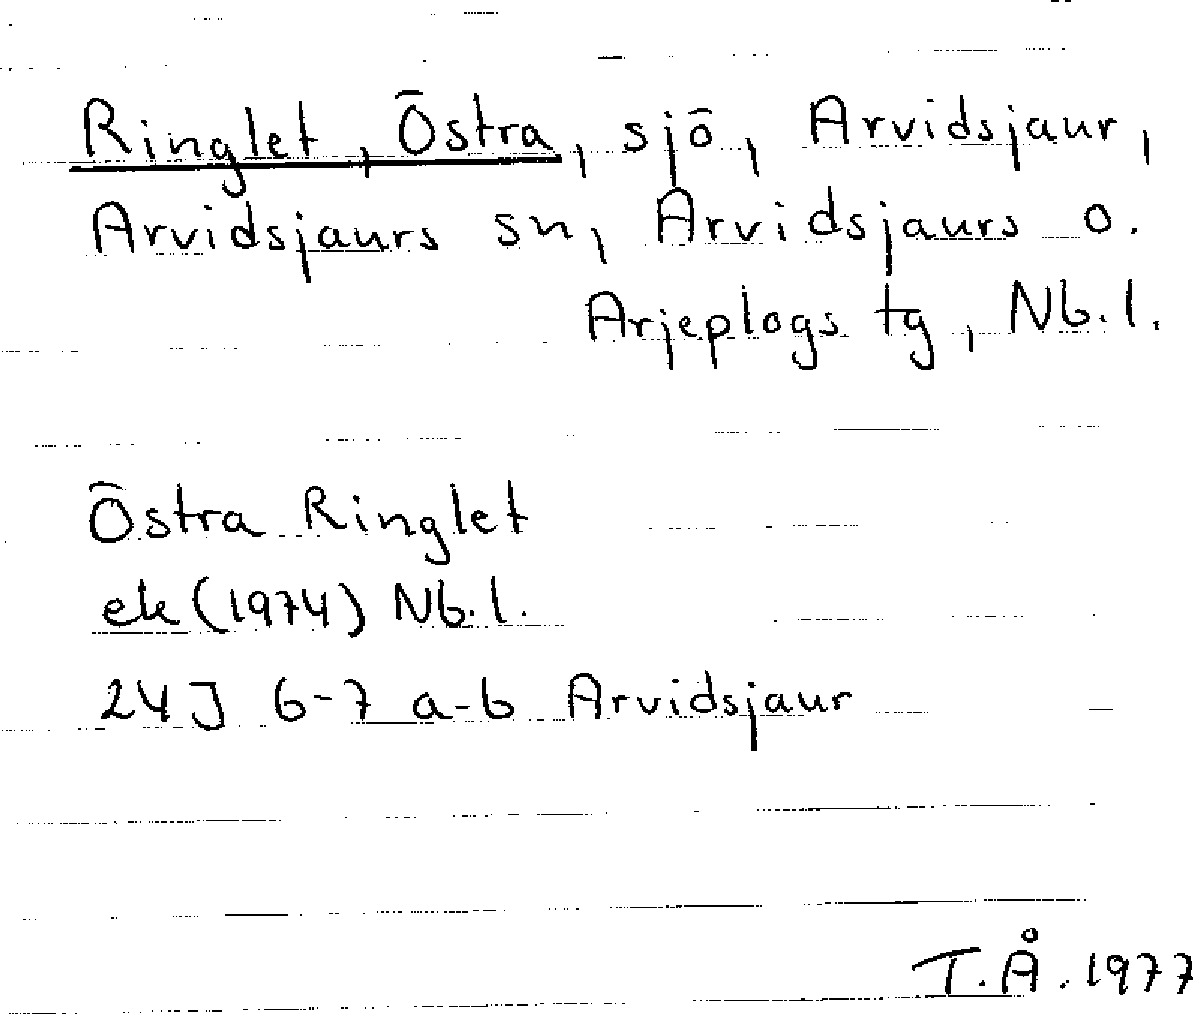 Ringlet, Östra, sjö, Arvidsjaur,
Arvidsjaurs sn, Arvidsjaurs o.
Arjeplogs tg, Nb.l.
Östra Ringlet
ek (1974) Nb.l.
24J 6-7 a-b Arvidsjaur
T.Å. 1977